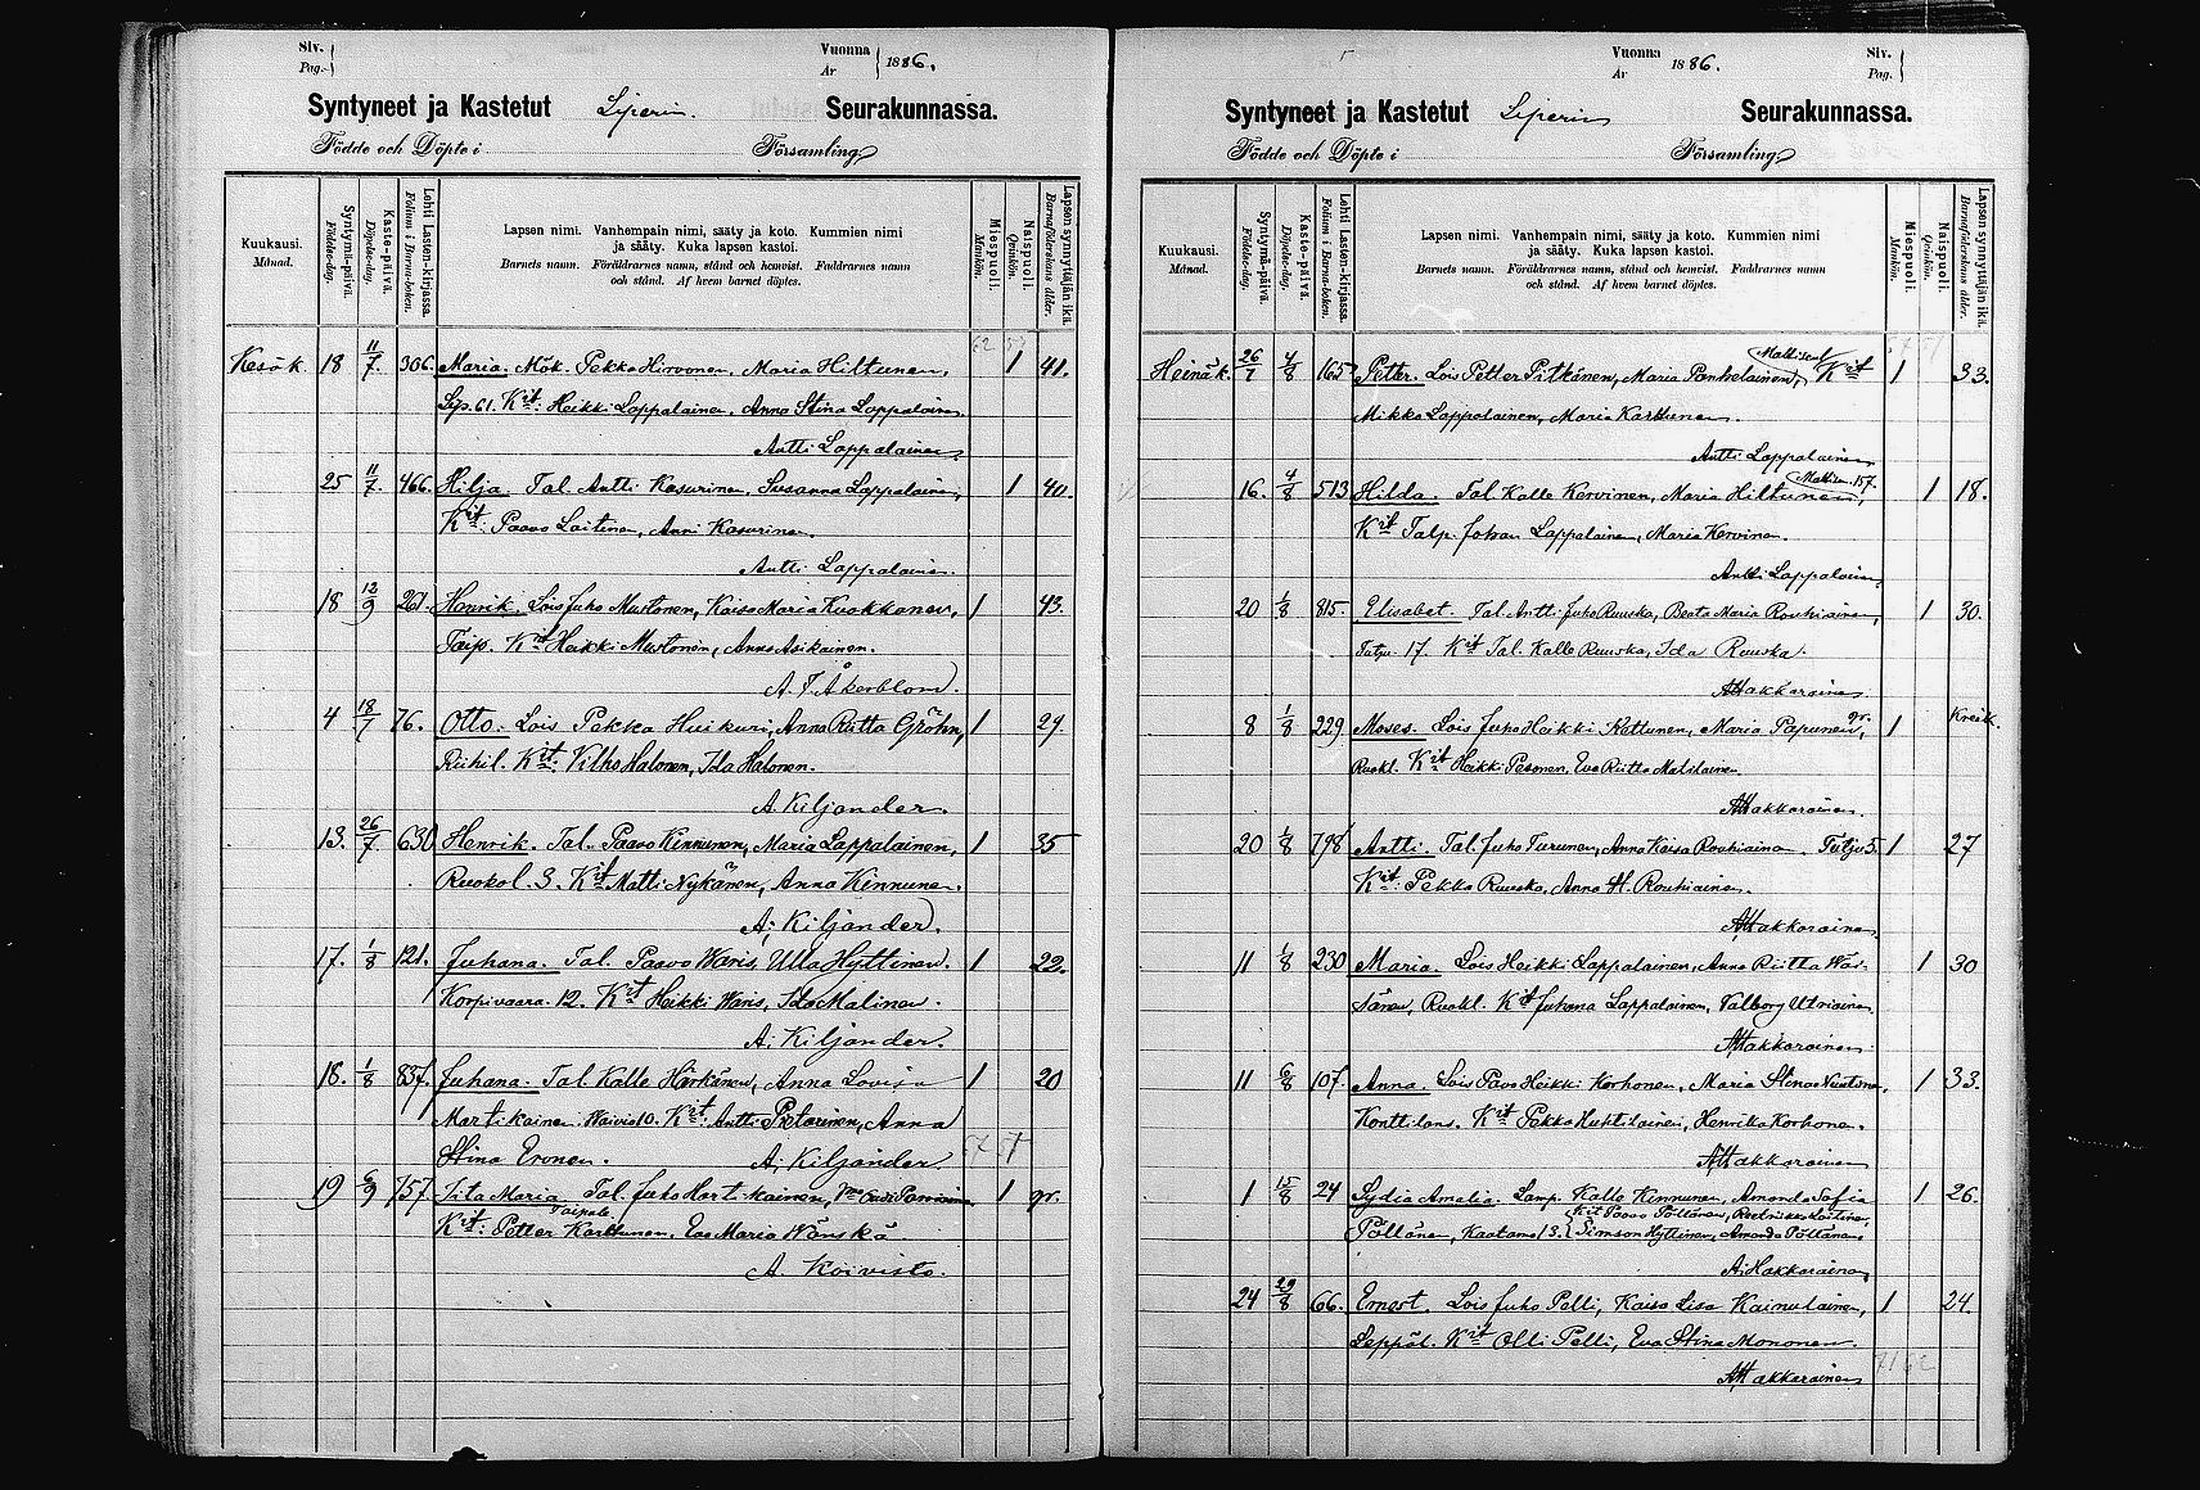 Siv.
Pag.
Vuonna
År
1886.
Syntyneet ja Kastetut Liperin. Seurakunnassa.
Födde och Döpte i Församling
Kuukausi.
Månad.
Syntymä-päivä.
Födelse-dag.
Kaste-päivä.
Döpelse-dag.
Lehti Lasten-kirjassa.
Folium i Barna-boken.
Lapsen nimi. Vanhempain nimi, sääty ja koto. Kummien nimi
ja sääty. Kuka lapsen kastoi.
Barnets namn. Föräldrarnes namn, stånd och hemvist. Faddrarnes namn
och stånd. Af hvem barnet döptes.
Miespuoli.
Mankön.
Naispuoli.
Qvinkön.
Lapsen synnyttäjän ikä.
Barnaföderskans ålder.
Kesäk. 18 11/7. 306. Maria. Mök. Pekka Hirvonen, Maria Hiltunen, 1 41.
Lip. 61. Kit: Heikki Lappalainen, Anna Stina Lappalainen.
Antti Lappalainen.
25 11/7. 466. Hilja. Tal. Antti Kasurinen, Susanna Lappalainen, 1 40.
Kit: Paavo Laitinen, Anni Kasurinen.
Antti Lappalainen.
18 12/9 261. Henrik. Lois Juho Mustonen, Kaisa Maria Kuokkanen, 1 43.
Taip. Kit Heikki Mustonen, Anna Asikainen.
A. F. Åkerblom.
4 18/7 76. Otto. Lois Pekka Huikuri, Anna Riitta Gröhn, 1 29.
Riihil. Kit: Vilho Halonen, Ida Halonen.
A. Kiljander.
13. 26/7. 630 Henrik. Tal. Paavo Kinnunen, Maria Lappalainen, 1 35
Ruokol. 3. Kit Matti Nykänen, Anna Kinnunen.
A; Kiljander.
17. 1/8 121. Juhana. Tal. Paavo Waris, Ulla Hyttinen. 1 22.
Korpivaara. 12. Kit Heikki Waris, Ida Malinen.
A; Kiljander.
18. 1/8 837. Juhana. Tal. Kalle Härkänen, Anna Lovisa 1 20
Martikainen. Waivio 10. Kit: Antti Pietarinen, Anna
Stina Eronen. A; Kiljander.
19 6/9 757. Tita Maria. Tal. Juho Hartikainen, 1 gr.
Taipale.
Kit: Petter Karttunen, Eva Maria Wänskä.
A. Koivisto.
Vuonna
År
1886.
Siv.
Pag.
Syntyneet ja Kastetut Liperin Seurakunnassa.
Födde och Döpte i Församling
Kuukausi.
Månad.
Syntymä-päivä.
Födelse-dag.
Kaste-päivä.
Döpelse-dag.
Lehti Lasten-kirjassa.
Folium i Barna-boken.
Lapsen nimi. Vanhempain nimi, sääty ja koto. Kummien nimi
ja sääty. Kuka lapsen kastoi.
Barnets namn. Föräldrarnes namn, stånd och hemvist. Faddrarnes namn
och stånd. Af hvem barnet döptes.
Miespuoli.
Mankön.
Naispuoli.
Qvinkön.
Lapsen synnyttäjän ikä.
Barnaföderskans ålder.
Heinäk. 26/7 4/8 165 Petter. Lois Petter Pitkänen, Maria Panhelainen, Kit 1 33.
Mikko Lappalainen, Maria Karttunen.
Antti Lappalainen
16. 4/8 513 Hilda. Tal. Kalle Kervinen, Maria Hiltunen, 157. 1 18.
Kit Talp. Johan Lappalainen, Maria Kervinen.
Antti Lappalainen
20 1/8 815. Elisabet. Tal. Antti Juho Ruuska, Beata Maria Rouhiainen, 1 30.
Tutju. 17. Kit Tal. Kalle Ruuska, Ida Ruuska.
AHakkarainen
8 1/8 229 Moses. Lois Juho Heikki Kettunen, Maria Papunen, gr. 1 Kreik.
Ruokl. Kit Heikki Pesonen, Eva Riitta Matilainen.
AHakkarainen.
20 1/8 798 Antti. Tal. Juho Turunen, Anna Kaisa Rouhiainen. Tutju 5. 1 27
Kit: Pekka Ruuska, Anna H. Rouhiainen.
AHakkarainen.
11 1/8 230 Maria. Lois Heikki Lappalainen, Anna Riitta Wäi- 1 30
sänen, Ruokl. Kit Juhana Lappalainen, Valborg Utriainen
AHakkarainen.
11 6/8 107. Anna. Lois Pavo Heikki Korhonen, Maria Stina 1 33.
Konttilans. Kit Pekka Huhtilainen, Henrika Korhonen.
AHakkarainen
1 15/8 24 Lydia Amalia. Lamp. Kalle Kinnunen, Amanda Sofia 1 26.
Kit Paavo Pöllänen, Laitinen,
Pöllänen, Kaatamo 13. Simson Hyttinen, Amanda Pöllänen.
A; Hakkarainen
24 29/8 66. Ernest. Lois Juho Pelli, Kaisa Lisa Kainulainen, 1 24.
Leppäl. Kit Olli Pelli, Eva Stina Mononen.
AHakkarainen